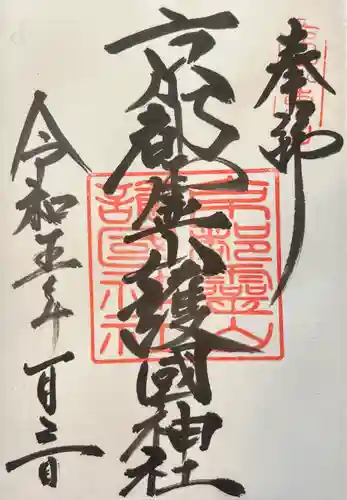 奉拝
京都霊山護國神社
令和五年一月三日
京都霊山護国神社